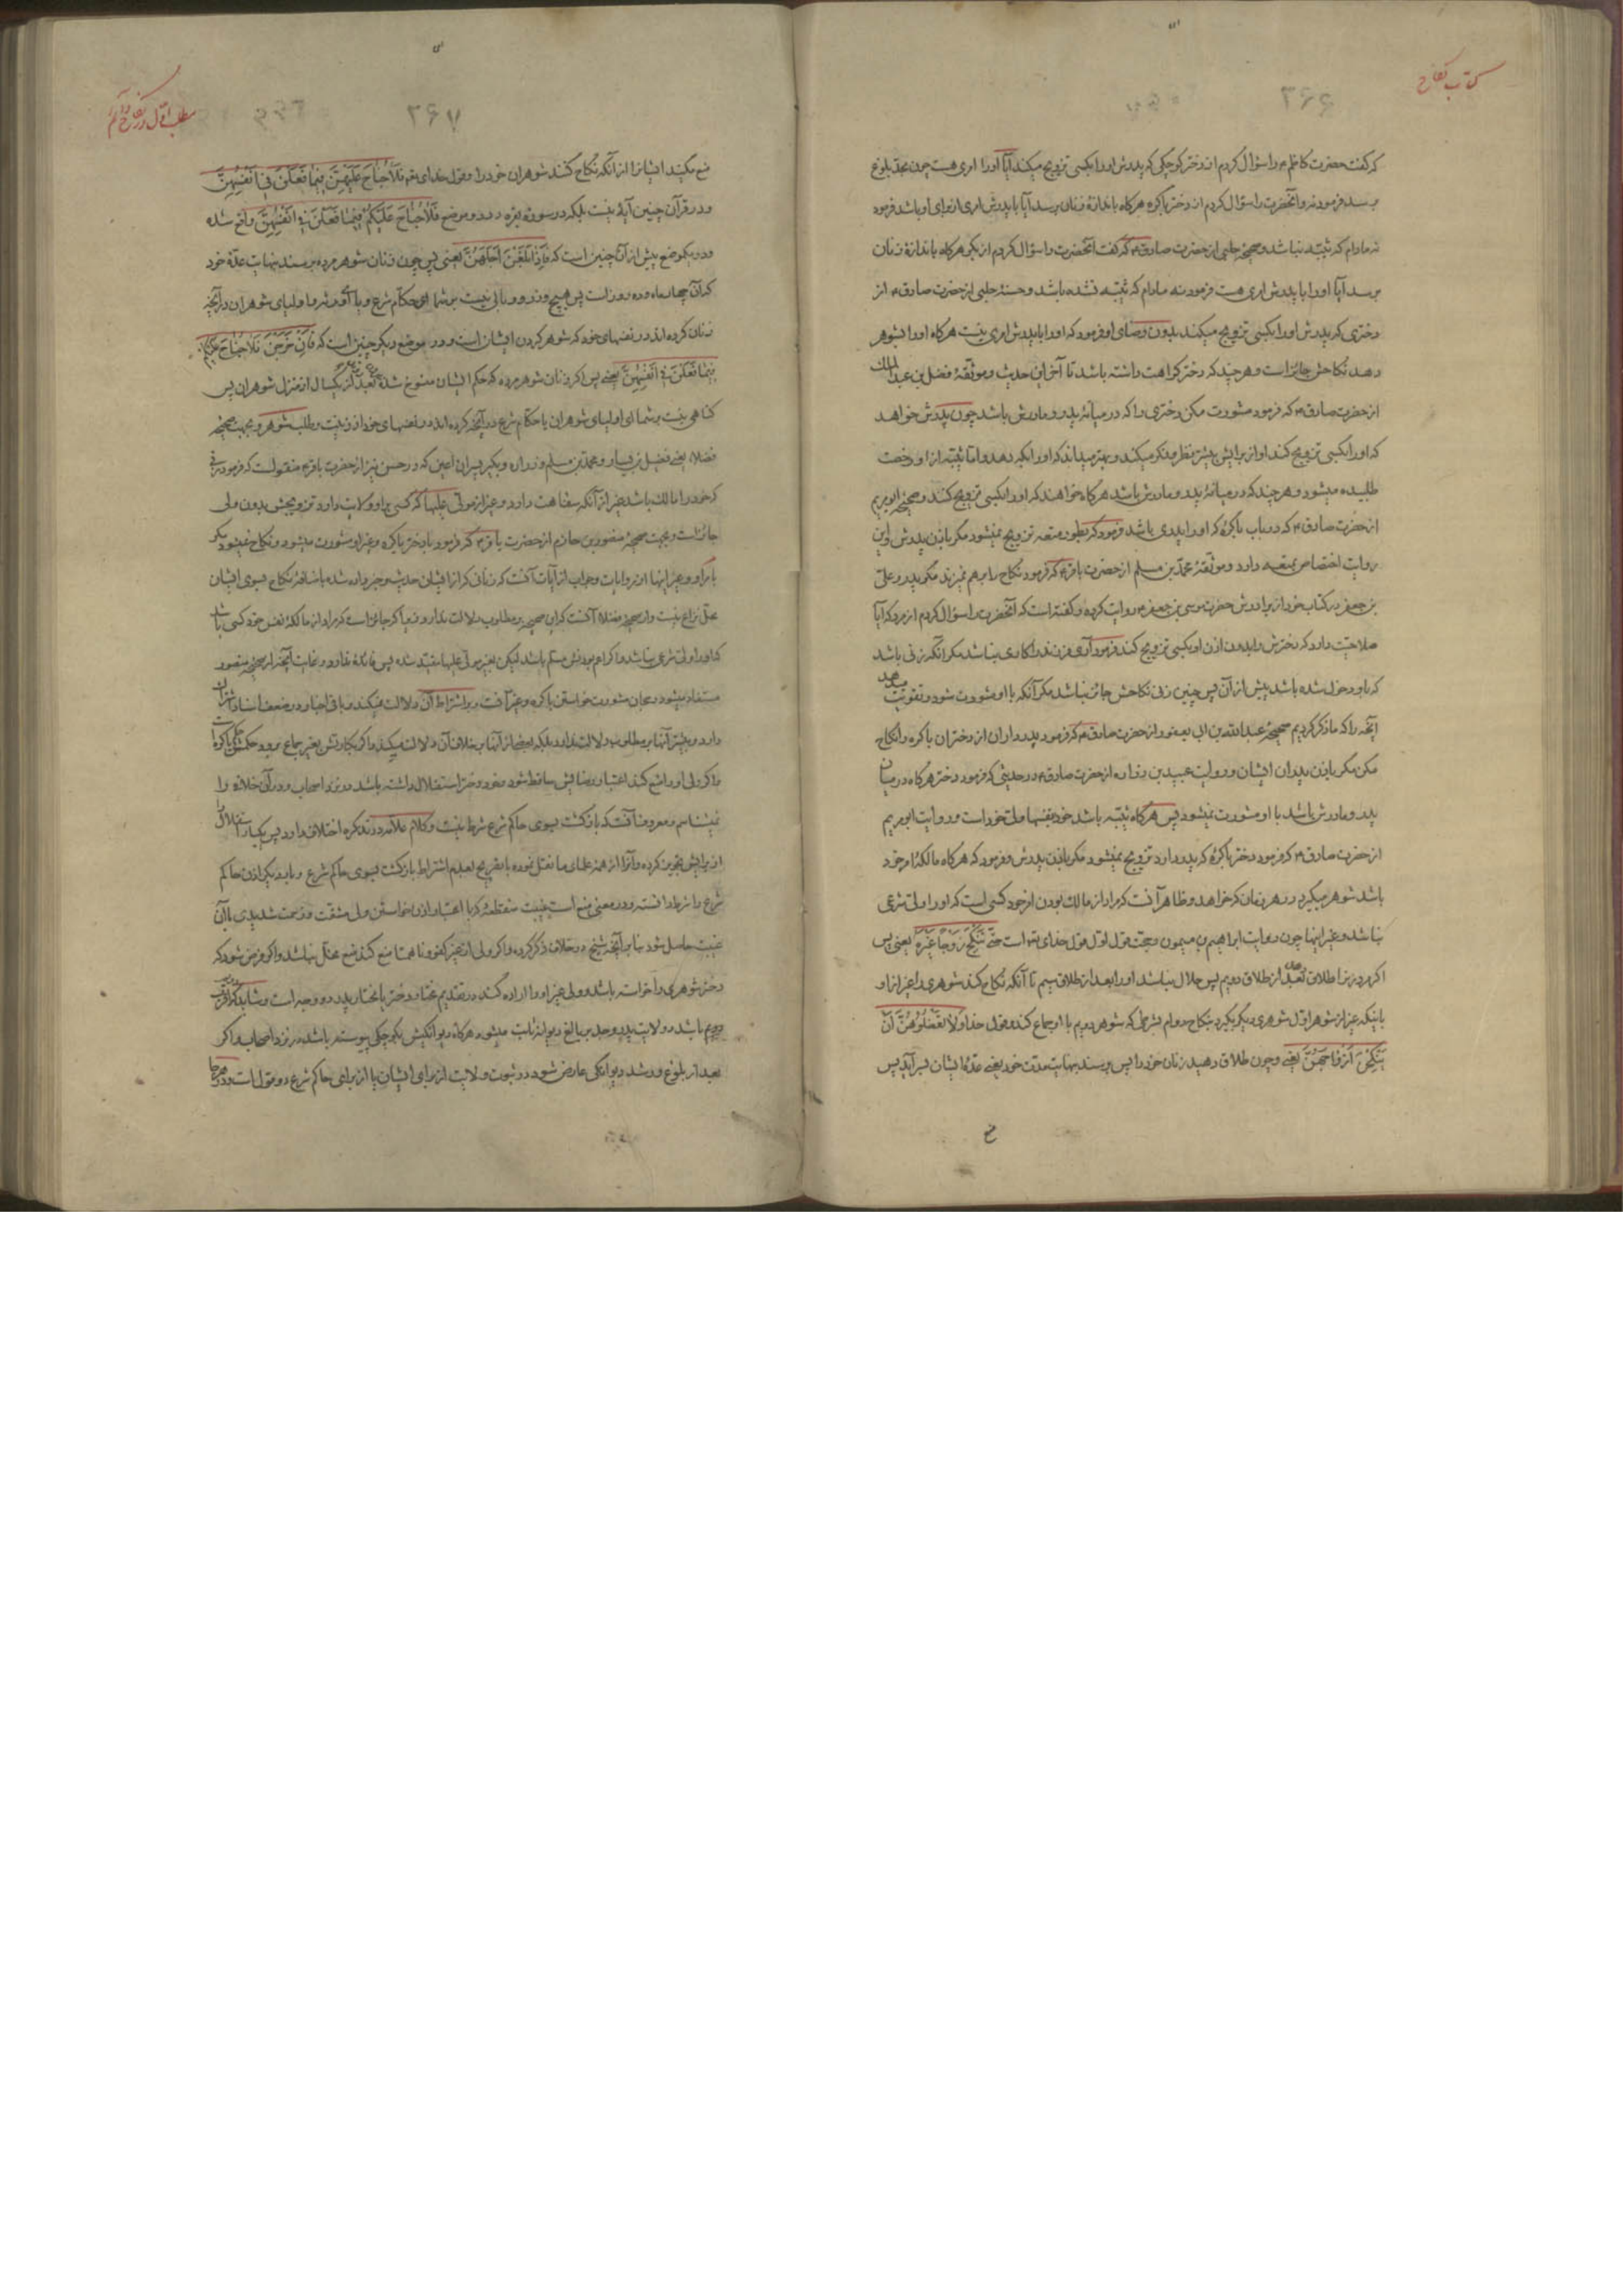 کتاب نکاح
۳۶۶
که گفت حضرت کاظم ع را سؤال کردم از دختر کوچکی که پدرش او را بکسی تزویج میکند آیا او را امری هست چون بحد بلوغ
برسد فرمود نه و آنحضرت را سؤال کردم از دختر باکره هرگاه باندازۀ زنان برسد آیا با پدرش امری از برای او باشد فرمود
نه مادام که ثیبه نباشد و صحیحۀ حلبی از حضرت صادق ع که گفت آنحضرت را سؤال کردم از بکر هرگاه باندازۀ زنان
برسد آیا او را با پدرش امری هست فرمود نه مادام که ثیبه نشده باشد و حسنۀ حلبی از حضرت صادق ع از
دختری که پدرش او را بکسی تزویج میکند بدون رضای او فرمود که او را با پدرش امری نیست هرگاه او را بشوهر
دهد نکاحش جائز است و هرچند که دختر کراهت داشته باشد تا آخر این حدیث و موثقۀ فضل بن عبدالملک
از حضرت صادق ع که فرمود مشورت مکن دختری را که در میانۀ پدر و مادرش باشد چون پدرش خواهد
که او را بکسی تزویج کند او از برایش بیشتر نظر و فکر میکند و بهتر میداند که او را بکه دهد و اما ثیبه از او رخصت
طلبیده میشود و هرچند که در میانۀ پدر و مادرش باشد هرگاه خواهند که او را بکسی تزویج کنند و صحیحۀ ابو مریم
از حضرت صادق ع که در باب باکرۀ که او را پدری باشد فرمود که بطور متعه تزویج نمیشود مگر باذن پدرش و این
روایت اختصاص بمتعه دارد و موثقۀ محمد بن مسلم از حضرت باقر ع که فرمود نکاح را بر هم نمیزند مگر پدر و علی
بن جعفر در کتاب خود از برادرش حضرت موسی بن جعفر ع روایت کرده و گفته است که آنحضرت را سؤال کردم از مرد که آیا
صلاحیت دارد که دخترش را بدون اذن او بکسی تزویج کند فرمود آری فرزند را کاری نباشد مگر آنکه زنی باشد
که باو دخول شده باشد پیش از آن پس چنین زنی نکاحش جائز نباشد مگر آنکه با او مشورت شود و تقویت میدهد
آنچه را که ما ذکر کردیم صحیحۀ عبدالله بن ابی یعفور از حضرت صادق ع که فرمود پدرداران از دختران باکره را نکاح
مکن مگر باذن پدران ایشان و روایت عبید بن زراره از حضرت صادق ع در حدیثی که فرمود دختر هرگاه در میان
پدر و مادرش باشد با او مشورت نمیشود پس هرگاه ثیبه باشد خود بنفسها ولی خود است و روایت ابو مریم
از حضرت صادق ع که فرمود دختر باکرۀ که پدر دارد تزویج نمیشود مگر باذن پدرش و فرمود که هرگاه مالکۀ امر خود
باشد شوهر میگیرد در هر زمان که خواهد و ظاهر آنست که مراد از مالک بودن امر خود کسی است که او را ولی شرعی
نباشد و غیر اینها چون روایت ابراهیم بن میمون و حجت قول اول قول خدای تعه است حَتّٰی تَنْکِحَ زَوْجًا غَیْرَهُ یعنی پس
اگر مرد زن را طلاق دهد بعد از طلاق دویم پس حلال نباشد او را بعد از طلاق سیم تا آنکه نکاح کند شوهری را غیر از او
باینکه غیر از شوهر اول شوهری دیگر بگیرد بنکاح دوام بشرطی که شوهر دویم با او جماع کند و قول خدا وَلَا تَعْضُلُوهُنَّ اَنْ
یَنْکِحْنَ اَزْوَاجَهُنَّ یعنی و چون طلاق دهید زنان خود را پس برسند بنهایت مدت خود یعنی عدۀ ایشان بسر آید پس
مطلب اول در نکاح دائم
۳۶۷
منع مکنید ایشانرا از آنکه نکاح کنند شوهران خود را و قول خدای تعه فَلَا جُنَاحَ عَلَیْهِنَّ فِیمَا فَعَلْنَ فِی اَنْفُسِهِنَّ
و در قرآن چنین آیۀ نیست بلکه در سورۀ بقره در دو موضع فَلَا جُنَاحَ عَلَیْکُمْ فِیمَا فَعَلْنَ فِی اَنْفُسِهِنَّ واقع شده
و در یکموضع پیش از آن چنین است که فَاِذَا بَلَغْنَ اَجَلَهُنَّ یعنی پس چون زنان شوهر مرده برسند بنهایت عدۀ خود
که آن چهار ماه و ده روز است پس هیچ وزر و وبالی نیست بر شما ای حکام شرع و یا ای اولیای شوهران در آنچه
زنان کرده اند در نفسهای خود که شوهر کردن ایشان است و در موضع دیگر چنین است که فَاِنْ خَرَجْنَ فَلَا جُنَاحَ عَلَیْکُمْ
فِیمَا فَعَلْنَ فِی اَنْفُسِهِنَّ یعنی پس اگر زنان شوهر مرده که حکم ایشان منسوخ شده بعد از یکسال از منزل شوهران پس
کناهی نیست بر شما ای اولیای شوهران یا حکام شرع در آنچه کرده اند در نفسهای خود از زینت و طلب شوهر و بجهت صحیحۀ
فضلاء یعنی فضیل بن یسار و محمد بن مسلم و زراره و بکیر پسران اعین که در حسن نیز از حضرت باقر ع منقولست که فرمود زنی
که خود را مالک باشد غیر از آنکه سفاهت دارد و غیر از مولی علیها که کسی بر او ولایت دارد تزویجش بدون ولی
جائز است و بجهت صحیحۀ منصور بن حازم از حضرت باقر ع که فرمود با دختر باکره و غیر او مشورت میشود و نکاح نمیشود مگر
بامر او و غیر اینها از روایات و جواب از آیات آنست که
محل نزاع نیست و از صحیحۀ فضلاء آنست که این صحیحه بر مطلوب دلالت ندارد زیرا که جائز است که مراد از مالکۀ نفس خود کسی باشد
که او را ولی شرعی نباشد
مستفاد میشود رجحان مشورت خواستن باکره و غیر آنست و بر اشتراط آن دلالت نمیکند و باقی اخبار در ضعف اسناد اشتراک
دارد و بیشتر آنها بر مطلوب دلالت ندارد بلکه بعضی از آنها بر خلاف آن دلالت میکند و اگر بکارتش بغیر جماع برود حکمش حکم باکره است
و اگر ولی او را منع کند اعتبار رضایش ساقط شود و خود دختر استقلال داشته باشد در نزد اصحاب و در آن خلافی را
نمیشناسم و معروف آنست که بازگشت بسوی حاکم شرع شرط نیست و کلام علامه در تذکره اختلاف دارد پس یکبار استقلال
از برایش تجویز کرده و آنرا از همۀ علمای ما نقل نموده با تصریح بعدم اشتراط بازگشت بسوی حاکم شرع و بار دیگر اذن حاکم
شرع را شرط دانسته و در معنی منع است غیبت منقطعۀ که با اعتبار اذن خواستن ولی مشقت و زحمت شدیدی با آن
غیبت حاصل شود بنا بر آنچه شیخ در خلاف ذکر کرده و اگر ولی از غیر کفو و ناهمتا منع کند منع عضل نباشد و اگر فرض شود که
دختر شوهری را خواسته باشد و ولی غیر او را اراده کند در تقدیم مختار دختر یا مختار پدر دو وجه است و شاید که اقرب
دویم باشد و ولایت پدر و جد بر بالغ دیوانه ثابت میشود هرگاه دیوانگیش بکوچکی پیوسته باشد در نزد اصحاب و اگر
بعد از بلوغ و رشد دیوانگی عارض شود در ثبوت ولایت از برای ایشان یا از برای حاکم شرع دو قول است و در هر جا